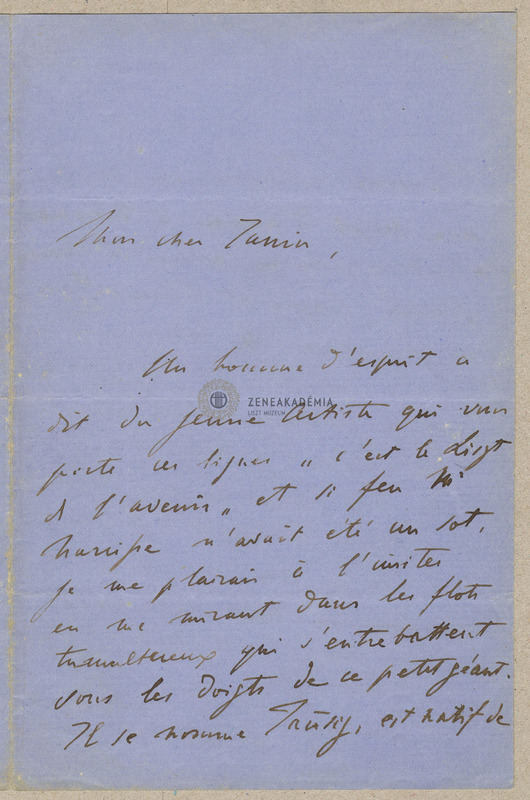 Mon cher Janin,
Un homme d'esprit a
dit du jeune Artiste qui vous
porte ces lignes „ c'est le Liszt
de l'avenir „ et si feu Mr
Narcisse n'avait été un sot,
je me plairais à l'imiter
en me mirant dans les flots
tumultueux qui s'entrebattent
sous les doigts de ce petit géant.
Il se nomme Tausig, est natif de
ZENEAKADÉMIA
LISZT MÚZEUM